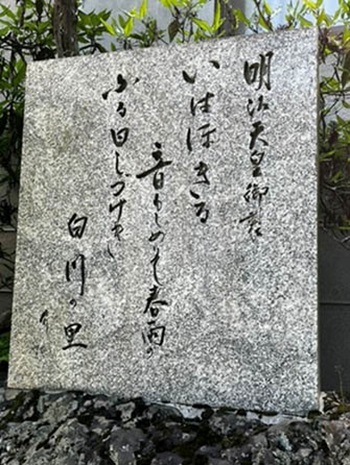 明治天皇御製
いはほきる
音もしめりて春雨の
ふる日しつけき
白川の里